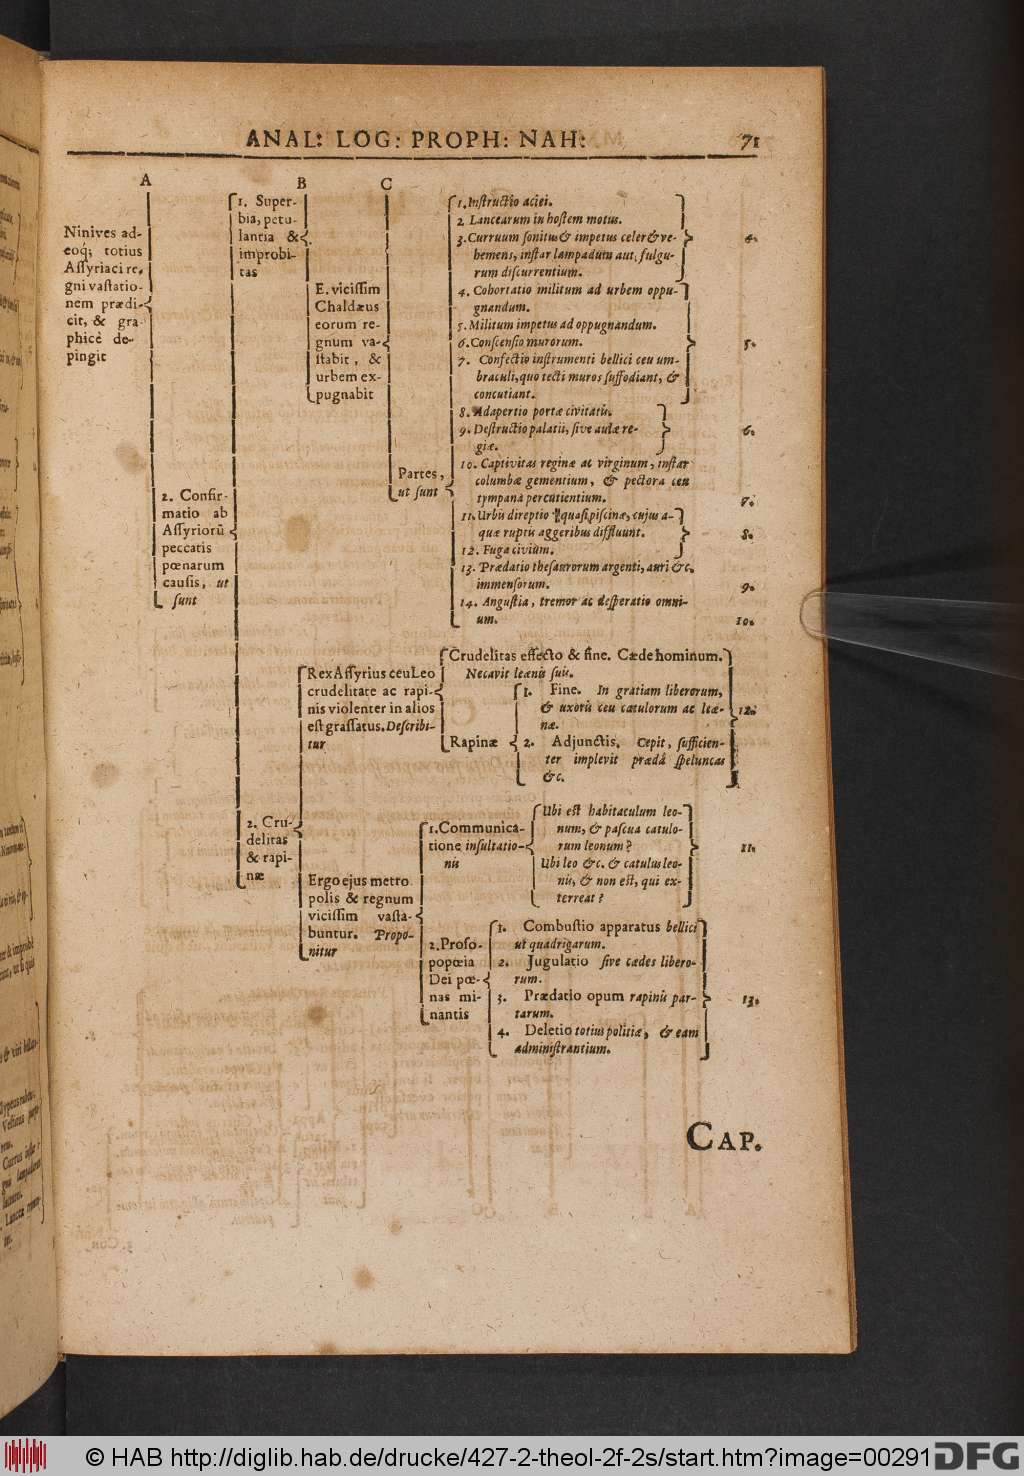 ANAL: LOG: PROPH: NAH:
71
A
B
C
Ninives ad-
eoq́; totius
Assyriaci re-
gni vastatio-
nem prædi-
cit, & gra-
phicè de-
pingit
1. Super-
bia, petu-
lantia &
improbi-
tas
E. vicissim
Chaldæus
eorum re-
gnum va-
stabit, &
urbem ex-
pugnabit
Partes,
ut sunt
1. Instructio aciei.
2 Lancearum in hostem motus.
3. Curruum sonitus & impetus celer & ve-
hemens, instar lampadum aut, fulgu-
rum discurrentium.
4.
4. Cohortatio militum ad urbem oppu-
gnandum.
5. Militum impetus ad oppugnandum.
6. Conscensio murorum.
7. Confectio instrumenti bellici ceu um-
braculi, quo tecti muros suffodiant, &
concutiant.
5.
8. Adapertio portæ civitatis.
9. Destructio palatii, sive aulæ re-
giæ.
6.
10. Captivitas reginæ ac virginum, instar
columbæ gementium, & pectora ceu
tympana percutientium.
7.
11. Urbis direptio quasi piscinæ, cujus a-
quæ ruptis aggeribus diffluunt.
12. Fuga civium.
8.
13. Prædatio thesaurorum argenti, auri &c.
immensorum.
9.
14. Angustia, tremor ac desperatio omni-
um.
10.
2. Confir-
matio ab
Assyriorũ
peccatis
pœnarum
causis, ut
sunt
2. Cru-
delitas
& rapi-
næ
Rex Assyrius ceu Leo
crudelitate ac rapi-
nis violenter in alios
est grassatus. Describi-
tur
Crudelitas effecto & fine. Cæde hominum.
Necavit leænis suis.
Rapinæ
1. Fine. In gratiam liberorum,
& uxoris ceu catulorum ac leæ-
næ.
2. Adjunctis. Cepit, sufficien-
ter implevit prædâ speluncas
&c.
12.
Ergo ejus metro
polis & regnum
vicissim vasta-
buntur. Propo-
nitur
1. Communica-
tione insultatio-
nis
Ubi est habitaculum leo-
num, & pascua catulo-
rum leonum?
Ubi leo &c. & catulus leo-
nis, & non est, qui ex-
terreat?
11.
2. Proso-
popœia
Dei pœ-
nas mi-
nantis
1. Combustio apparatus bellici
ut quadrigarum.
2. Jugulatio sive cædes libero-
rum.
3. Prædatio opum rapinis par-
tarum.
4. Deletio totius politiæ, & eam
administrantium.
13.
CAP.
© HAB http://diglib.hab.de/drucke/427-2-theol-2f-2s/start.htm?image=00291
DFG